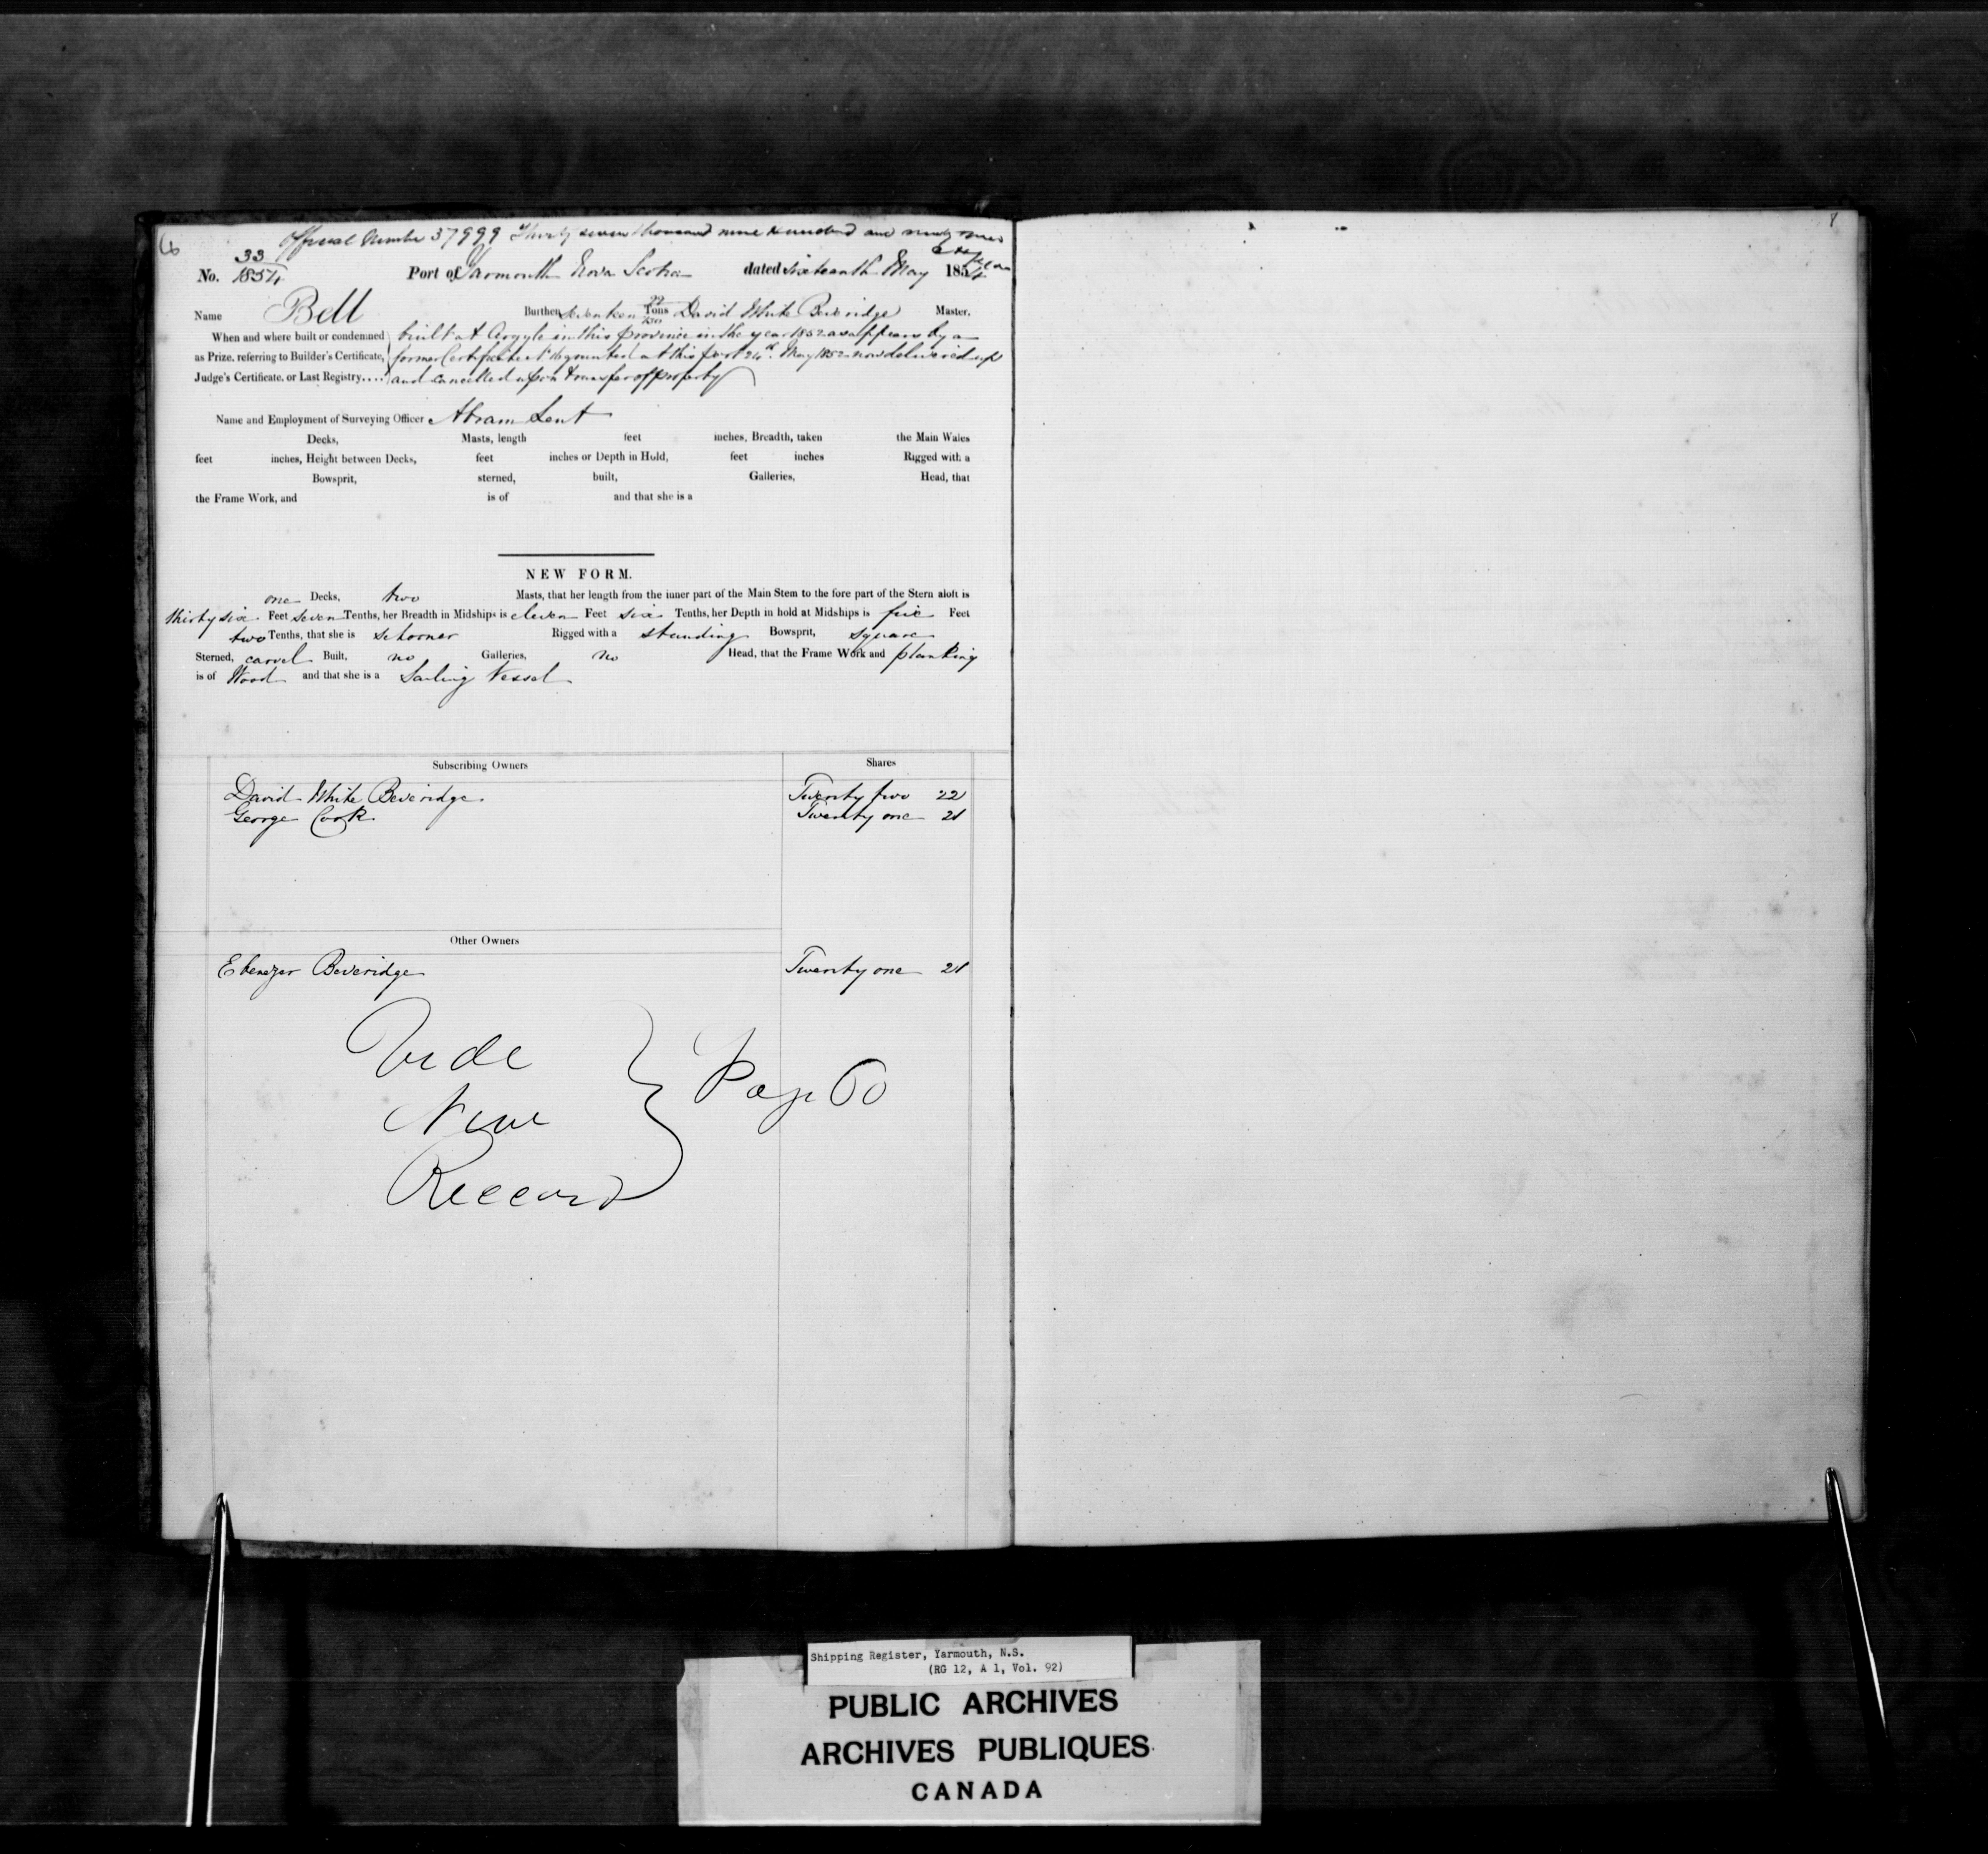 6
Official Number 37999 Thirty seven thousand nine hundred and ninety nine
33
No. 1854 Port of Yarmouth Nova Scotia dated sixteenth May 1854
Name Bell Burthen seventeen 22/130 Tons David White Beveridge Master.
When and where built or condemned built at Argyle in this province in the year 1852 as appears by a
as Prize, referring to Builder's Certificate, former Certificate No 16 granted at this port 24th May 1852 now delivered up
Judge's Certificate, or Last Registry.... and cancelled upon transfer of property
Name and Employment of Surveying Officer Abram Lent
Decks, Masts, length feet inches, Breadth, taken the Main Wales
feet inches, Height between Decks, feet inches or Depth in Hold, feet inches Rigged with a
Bowsprit, sterned, built, Galleries, Head, that
the Frame Work, and is of and that she is a
NEW FORM.
one Decks, two Masts, that her length from the inner part of the Main Stem to the fore part of the Stern aloft is
thirty six Feet seven Tenths, her Breadth in Midships is eleven Feet six Tenths, her Depth in hold at Midships is five Feet
two Tenths, that she is schooner Rigged with a standing Bowsprit, square
Sterned, carvel Built, no Galleries, no Head, that the Frame Work and planking
is of Wood and that she is a Sailing Vessel
Subscribing Owners Shares
David White Beveridge Twenty two 22
George Cook Twenty one 21
Other Owners
Ebenezer Beveridge Twenty one 21
Vide
New
Record
Page 60
Shipping Register, Yarmouth, N.S.
(RG 12, A 1, Vol. 92)
PUBLIC ARCHIVES
ARCHIVES PUBLIQUES
CANADA